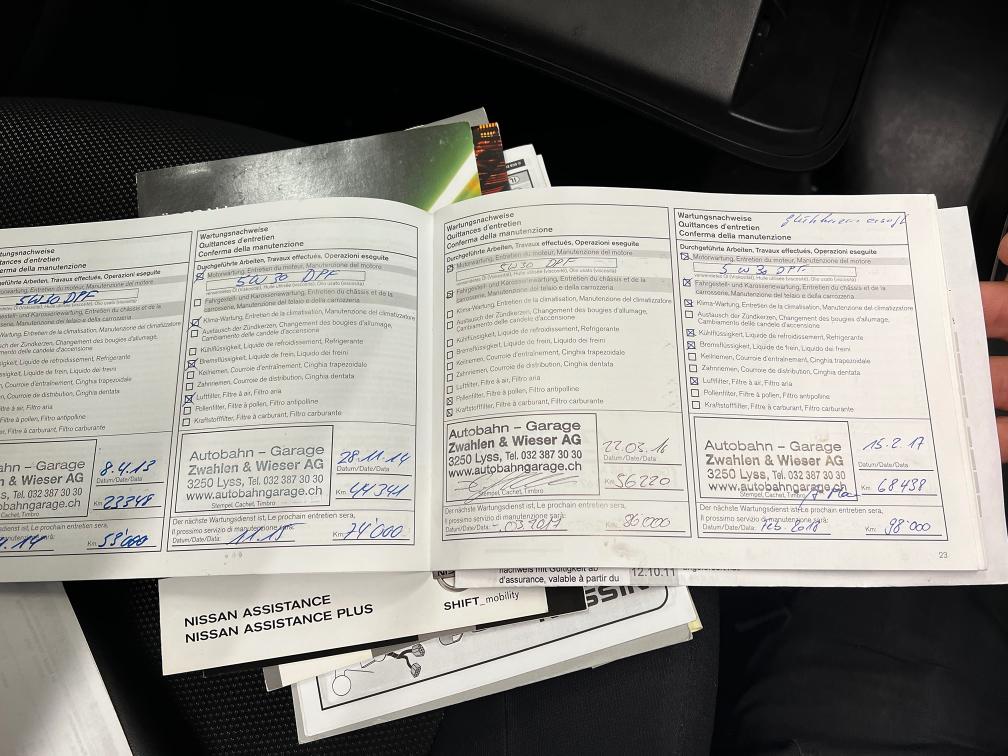 Wartungsnachweise
Quittances d'entretien
Conferma della manutenzione
Durchgeführte Arbeiten, Travaux effectués, Operazioni eseguite
5W30 DPF
Entretien du moteur, Manutenzione del motore
Autobahn – Garage
Zwahlen & Wieser AG
3250 Lyss, Tel. 032 387 30 30
www.autobahngarage.ch
8.4.13
Datum/Date/Data
Km: 23348
Km: 53'000
Wartungsnachweise
Quittances d'entretien
Conferma della manutenzione
Durchgeführte Arbeiten, Travaux effectués, Operazioni eseguite
Motorwartung, Entretien du moteur, Manutenzione del motore
5W30 DPF
Fahrgestell- und Karosseriewartung, Entretien du châssis et de la
carrosserie, Manutenzione del telaio e della carrozzeria
Klima-Wartung, Entretien de la climatisation, Manutenzione del climatizzatore
Austausch der Zündkerzen, Changement des bougies d'allumage,
Cambiamento delle candele d'accensione
Kühlflüssigkeit, Liquide de refroidissement, Refrigerante
Bremsflüssigkeit, Liquide de frein, Liquido dei freini
Keilriemen, Courroie d'entraînement, Cinghia trapezoidale
Zahnriemen, Courroie de distribution, Cinghia dentata
Luftfilter, Filtre à air, Filtro aria
Pollenfilter, Filtre à pollen, Filtro antipolline
Kraftstofffilter, Filtre à carburant, Filtro carburante
Autobahn – Garage
Zwahlen & Wieser AG
3250 Lyss, Tel. 032 387 30 30
www.autobahngarage.ch
Stempel, Cachet, Timbro
28.11.14
Datum/Date/Data
Km: 44'341
Der nächste Wartungsdienst ist, Le prochain entretien sera,
Il prossimo servizio di manutenzione sarà:
Datum/Date/Data: 11.15
Km: 74'000
Wartungsnachweise
Quittances d'entretien
Conferma della manutenzione
Durchgeführte Arbeiten, Travaux effectués, Operazioni eseguite
Motorwartung, Entretien du moteur, Manutenzione del motore
5W30 DPF
Fahrgestell- und Karosseriewartung, Entretien du châssis et de la
carrosserie, Manutenzione del telaio e della carrozzeria
Klima-Wartung, Entretien de la climatisation, Manutenzione del climatizzatore
Austausch der Zündkerzen, Changement des bougies d'allumage,
Cambiamento delle candele d'accensione
Kühlflüssigkeit, Liquide de refroidissement, Refrigerante
Bremsflüssigkeit, Liquide de frein, Liquido dei freini
Keilriemen, Courroie d'entraînement, Cinghia trapezoidale
Zahnriemen, Courroie de distribution, Cinghia dentata
Luftfilter, Filtre à air, Filtro aria
Pollenfilter, Filtre à pollen, Filtro antipolline
Kraftstofffilter, Filtre à carburant, Filtro carburante
Autobahn – Garage
Zwahlen & Wieser AG
3250 Lyss, Tel. 032 387 30 30
www.autobahngarage.ch
Stempel, Cachet, Timbro
22.03.16
Datum/Date/Data
Km: 56220
Der nächste Wartungsdienst ist, Le prochain entretien sera,
Il prossimo servizio di manutenzione sarà:
Datum/Date/Data: 03.2017
Km: 86000
Wartungsnachweise
Quittances d'entretien
Conferma della manutenzione
Durchgeführte Arbeiten, Travaux effectués, Operazioni eseguite
Motorwartung, Entretien du moteur, Manutenzione del motore
5W30 DPF
Fahrgestell- und Karosseriewartung, Entretien du châssis et de la
carrosserie, Manutenzione del telaio e della carrozzeria
Klima-Wartung, Entretien de la climatisation, Manutenzione del climatizzatore
Austausch der Zündkerzen, Changement des bougies d'allumage,
Cambiamento delle candele d'accensione
Kühlflüssigkeit, Liquide de refroidissement, Refrigerante
Bremsflüssigkeit, Liquide de frein, Liquido dei freini
Keilriemen, Courroie d'entraînement, Cinghia trapezoidale
Zahnriemen, Courroie de distribution, Cinghia dentata
Luftfilter, Filtre à air, Filtro aria
Pollenfilter, Filtre à pollen, Filtro antipolline
Kraftstofffilter, Filtre à carburant, Filtro carburante
Autobahn – Garage
Zwahlen & Wieser AG
3250 Lyss, Tel. 032 387 30 30
www.autobahngarage.ch
Stempel, Cachet, Timbro
15.2.17
Datum/Date/Data
Km: 68438
Der nächste Wartungsdienst ist, Le prochain entretien sera,
Il prossimo servizio di manutenzione sarà:
Datum/Date/Data: Feb. 2018
Km: 98'000
23
d'assurance, valable à partir du
12.10.11
NISSAN ASSISTANCE
NISSAN ASSISTANCE PLUS
SHIFT_mobility